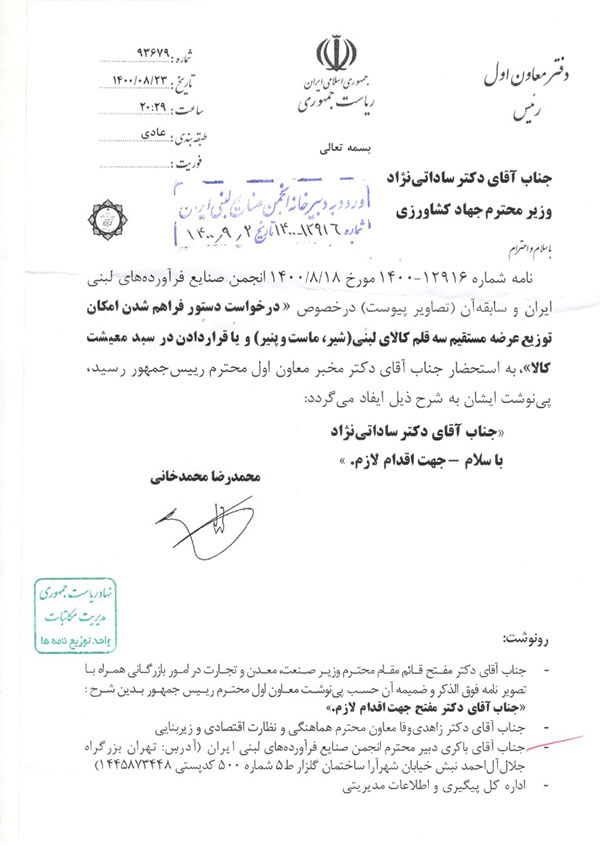 دفتر معاون اول
رئیس
جمهوری اسلامی ایران
ریاست جمهوری
شماره: ۹۳۶۷۹
تاریخ: ۱۴۰۰/۰۸/۲۳
ساعت: ۲۰:۲۹
طبقه بندی: عادی
فوریت:
بسمه تعالی
جناب آقای دکتر ساداتی‌نژاد
وزیر محترم جهاد کشاورزی
ورود به دبیرخانه انجمن صنایع لبنی ایران
شماره ۱۴۰۰-۱۲۹۱۶ تاریخ ۱۴۰۰٫۹٫۲
با سلام و احترام
نامه شماره ۱۲۹۱۶-۱۴۰۰ مورخ ۱۴۰۰/۸/۱۸ انجمن صنایع فرآورده‌های لبنی
ایران و سابقه‌آن (تصاویر پیوست) درخصوص « درخواست دستور فراهم شدن امکان
توزیع عرضه مستقیم سه قلم کالای لبنی(شیر، ماست و پنیر) و یا قراردادن در سبد معیشت
کالا»، به استحضار جناب آقای دکتر مخبر معاون اول محترم رییس‌جمهور رسید،
پی‌نوشت ایشان به شرح ذیل ایفاد می‌گردد:
«جناب آقای دکتر ساداتی‌نژاد
با سلام – جهت اقدام لازم. »
محمدرضا محمدخانی
نهاد ریاست جمهوری
مدیریت مکاتبات
واحد توزیع نامه ها
رونوشت:
- جناب آقای دکتر مفتح قائم مقام محترم وزیر صنعت، معدن و تجارت در امور بازرگانی همراه با
تصویر نامه فوق الذکر و ضمیمه آن حسب پی‌نوشت معاون اول محترم رییس جمهور بدین شرح :
«جناب آقای دکتر مفتح جهت اقدام لازم.»
- جناب آقای دکتر زاهدی‌وفا معاون محترم هماهنگی و نظارت اقتصادی و زیربنایی
- جناب آقای باکری دبیر محترم انجمن صنایع فرآورده‌های لبنی ایران (آدرس: تهران بزرگراه
جلال‌آل‌احمد نبش خیابان شهرآرا ساختمان گلزار ط۵ شماره ۵۰۰ کدپستی ۱۴۴۵۸۷۳۴۴۸)
- اداره کل پیگیری و اطلاعات مدیریتی